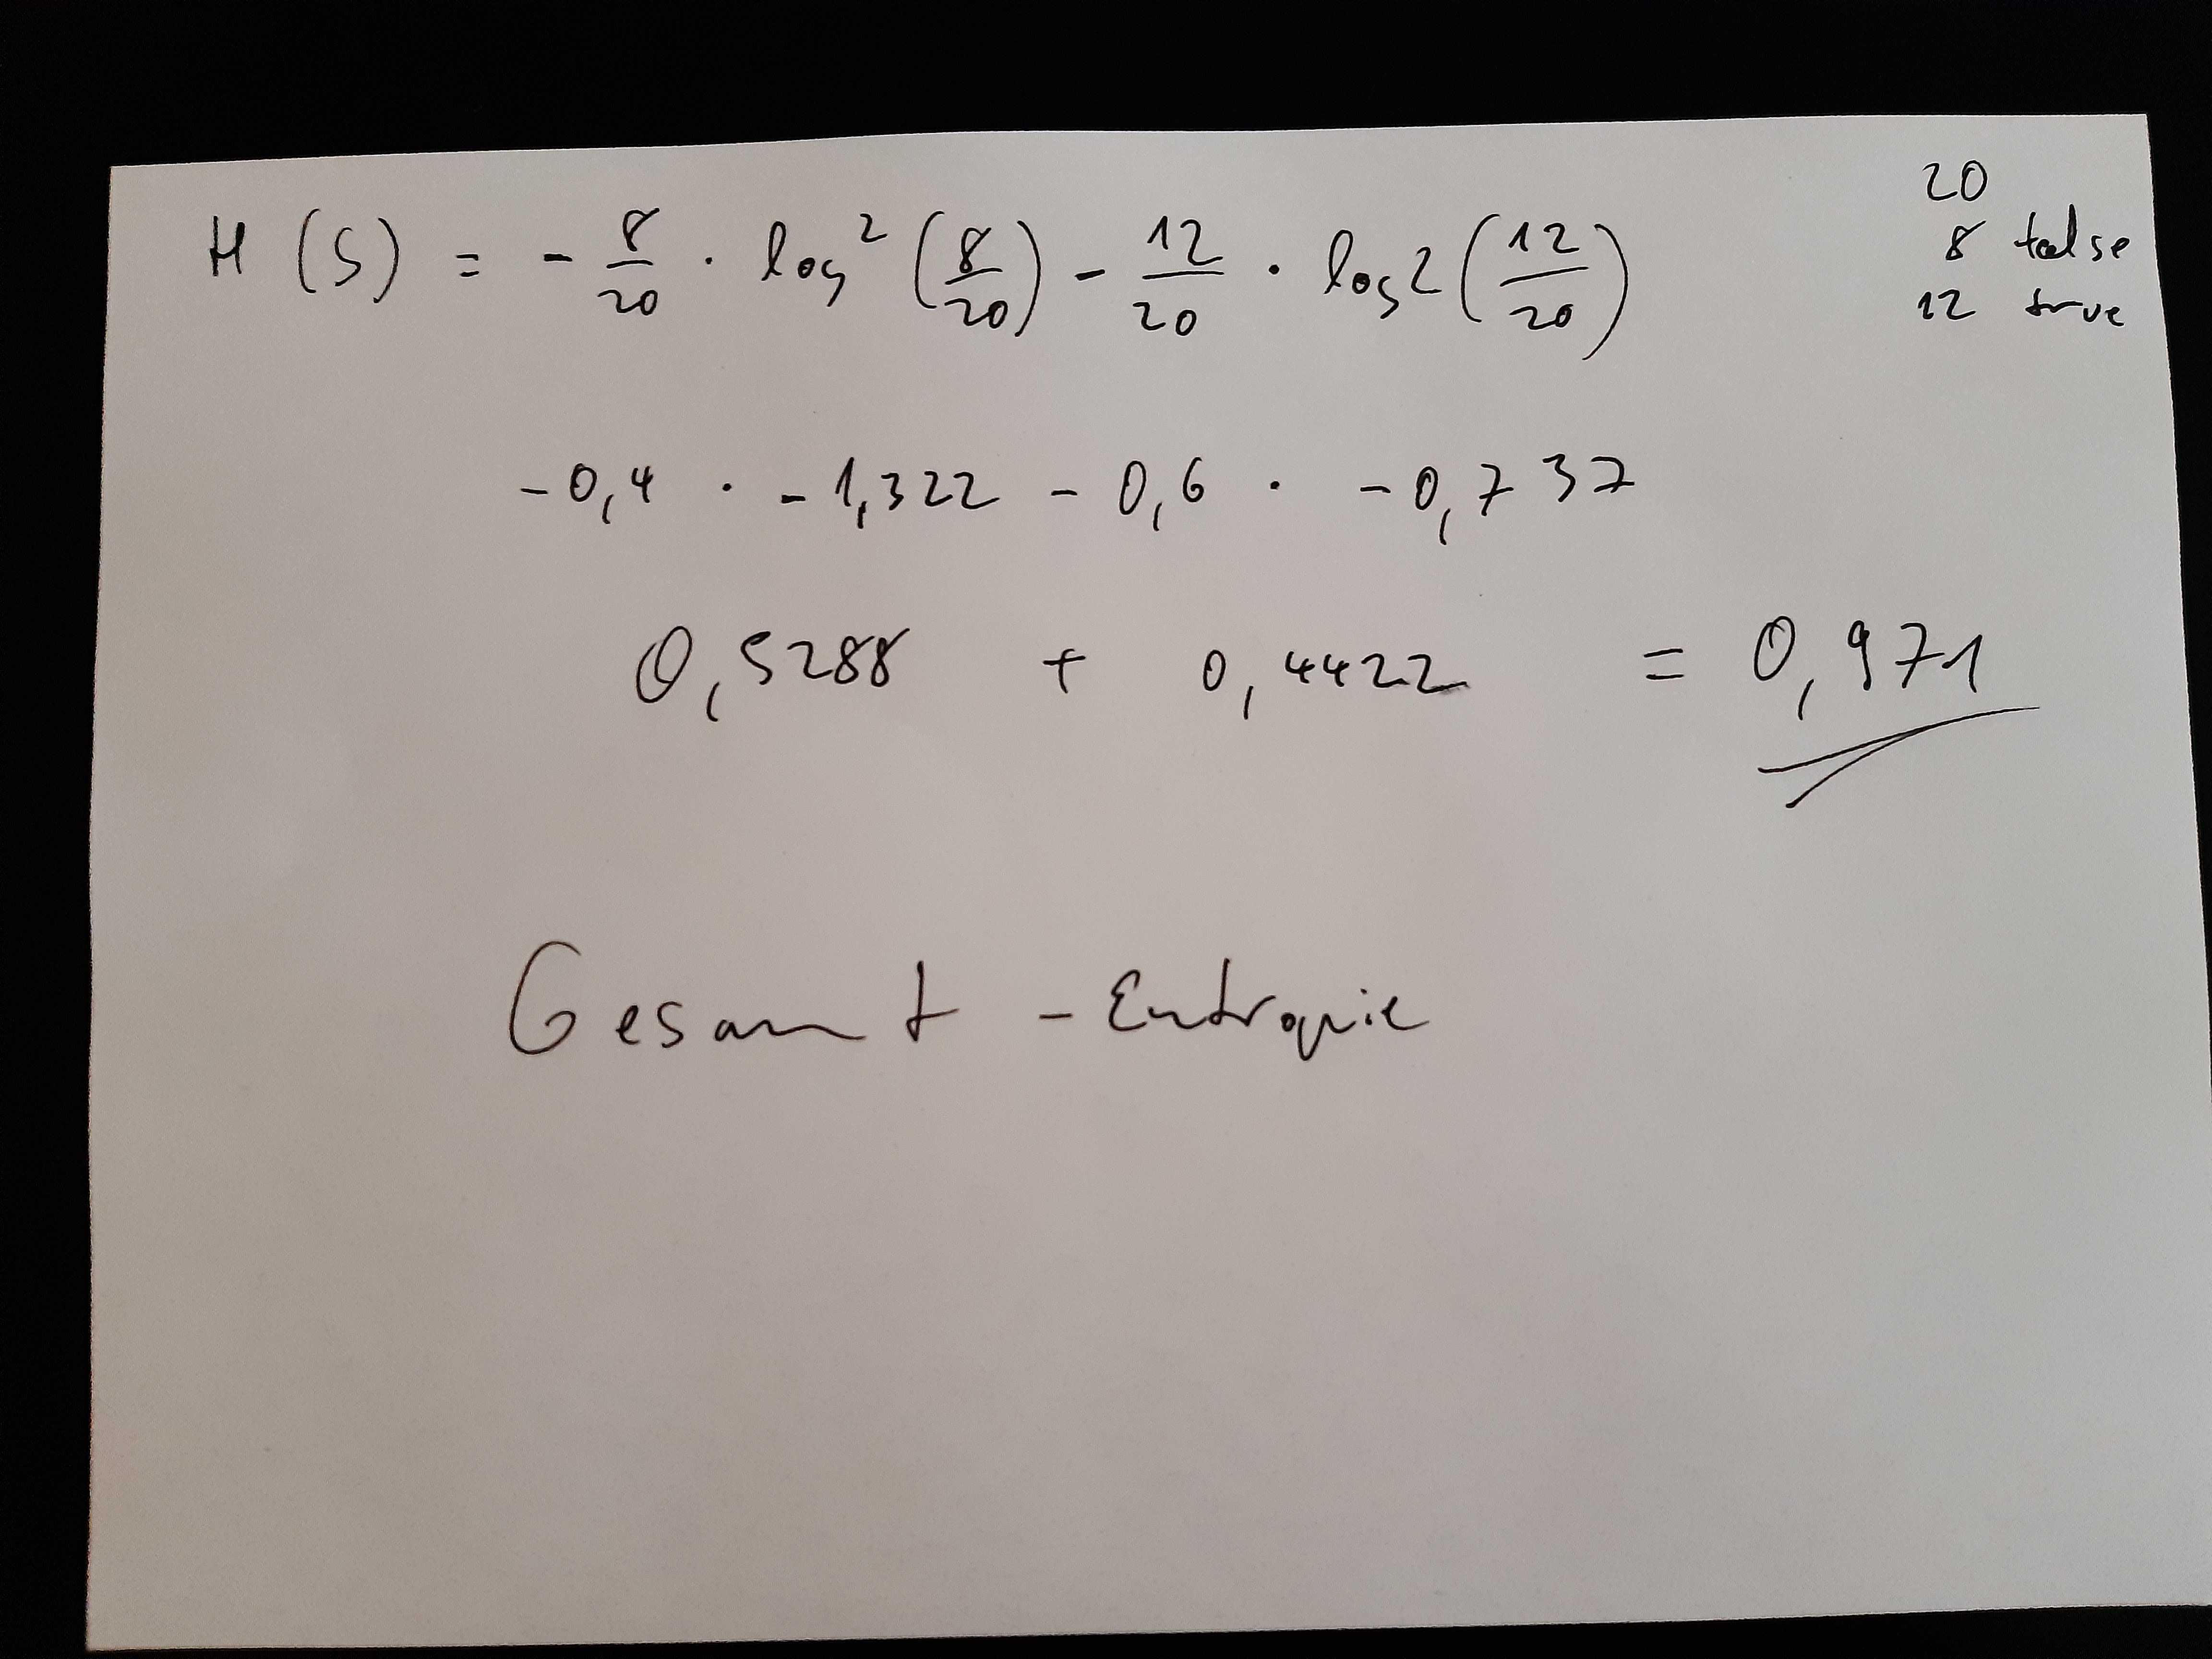 20
8 false
12 true
H(S) = - 8/20 · log2(8/20) - 12/20 · log2(12/20)
-0,4 · -1,322 - 0,6 · -0,737
0,5288 + 0,4422 = 0,971
Gesamt-Entropie